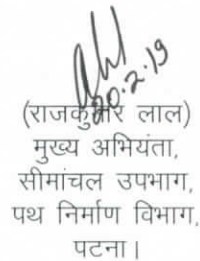 20.2.19
(राजकुमार लाल)
मुख्य अभियंता,
सीमांचल उपभाग,
पथ निर्माण विभाग,
पटना।